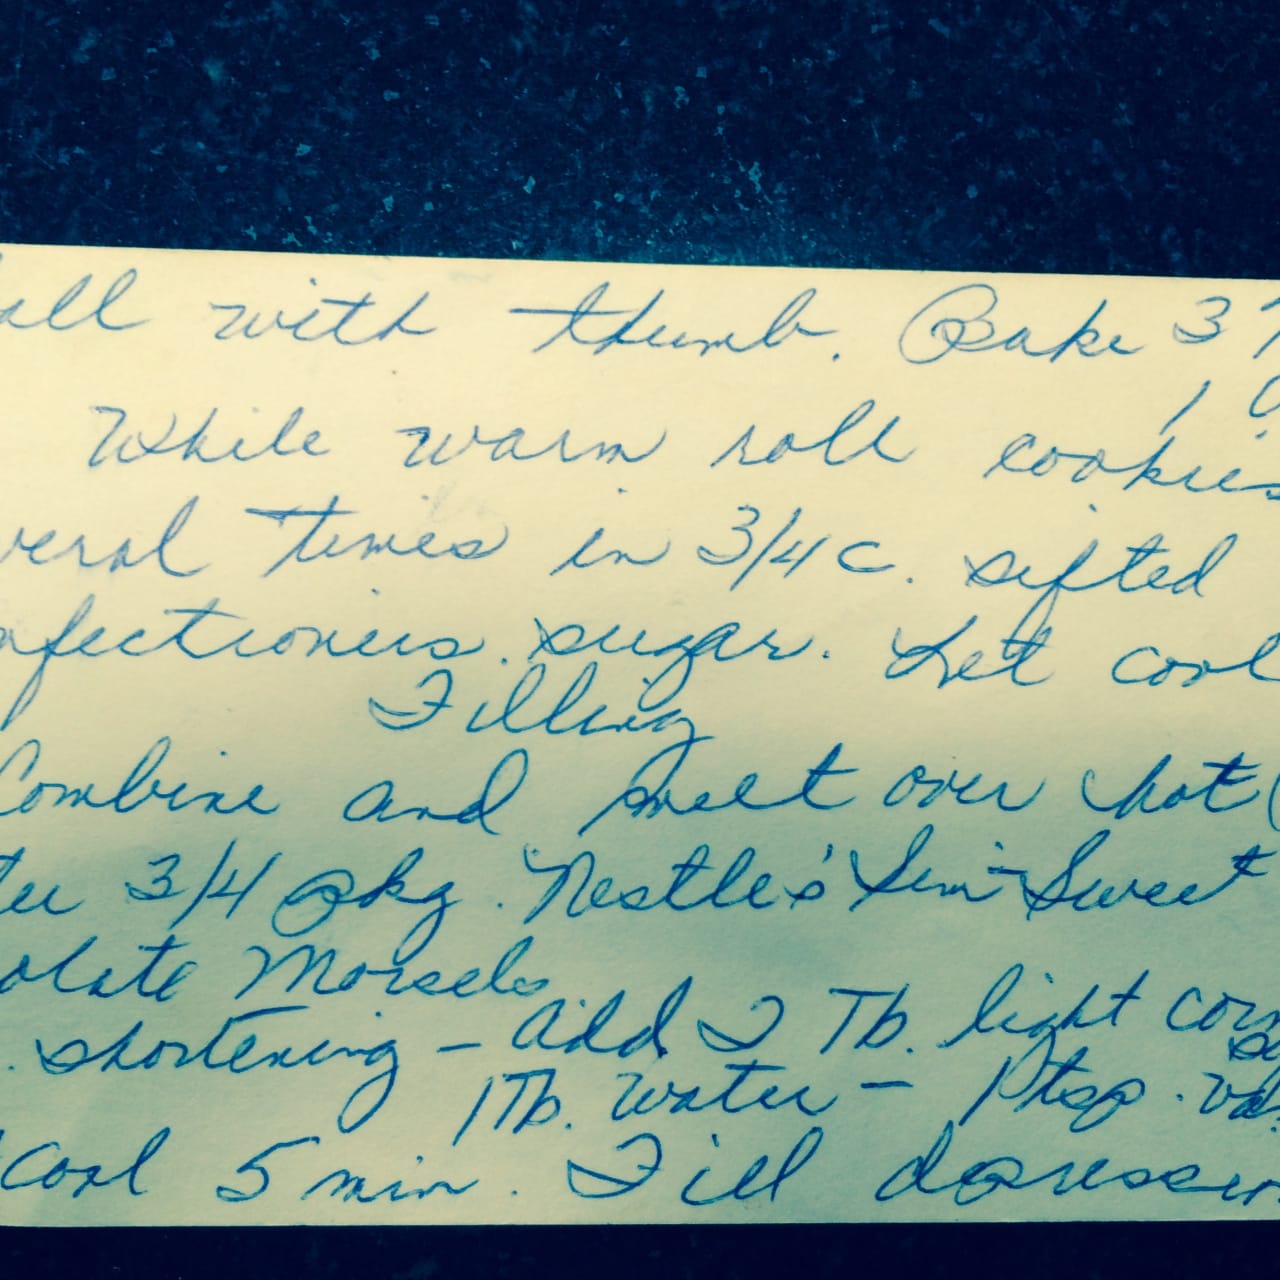 all with thumb. Bake 3
While warm roll cookies
veral times in 3/4 c. sifted
nfectioners sugar. Let cool
Filling
Combine and melt over hot (
ter 3/4 pkg. Nestle's Semi-Sweet
olate Morsels
. shortening - add 2 Tb. light corn
1 Tb. water - 1 tsp. va
cool 5 min. Fill depression